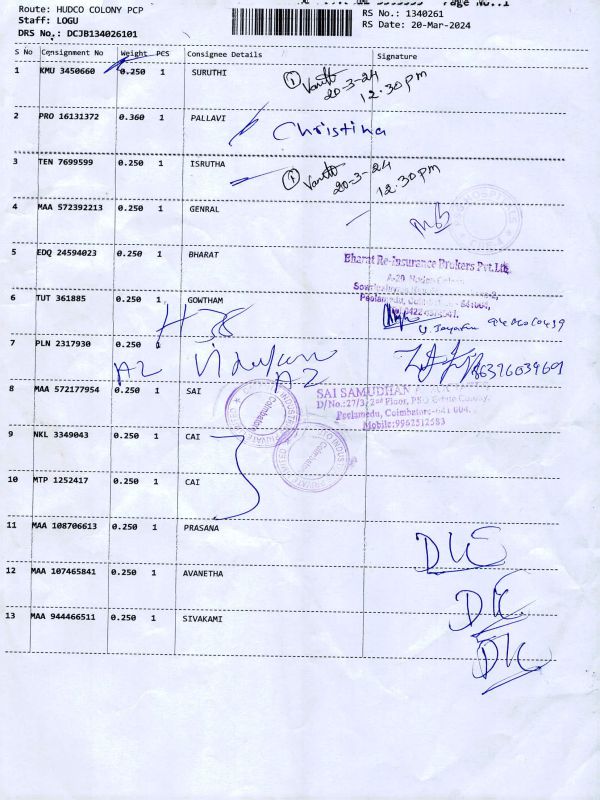 Page No.:1
Route: HUDCO COLONY PCP
Staff: LOGU
DRS No.: DCJB134026101
RS No.: 1340261
RS Date: 20-Mar-2024
S No Consignment No Weight PCS Consignee Details Signature
1 KMU 3450660 0.250 1 SURUTHI
20-3-24
12.30pm
2 PRO 16131372 0.360 1 PALLAVI Christina
3 TEN 7699599 0.250 1 ISRUTHA
20-3-24
12.30pm
4 MAA 572392213 0.250 1 GENRAL
5 EDQ 24594023 0.250 1 BHARAT
Bharat Re-Insurance Brokers Pvt.Ltd.
6 TUT 361885 0.250 1 GOWTHAM
7 PLN 2317930 0.250
A2
A2
8 MAA 572177954 0.250 1 SAI
SAI SAMUDHAN
D/No.:27/3, 2nd Floor,
Peelamedu, Coimbatore-641 004.
Mobile:9962512583
Coimbatore
9 NKL 3349043 0.250 1 CAI
10 MTP 1252417 0.250 1 CAI
11 MAA 108706613 0.250 1 PRASANA
12 MAA 107465841 0.250 1 AVANETHA
13 MAA 944466511 0.250 1 SIVAKAMI